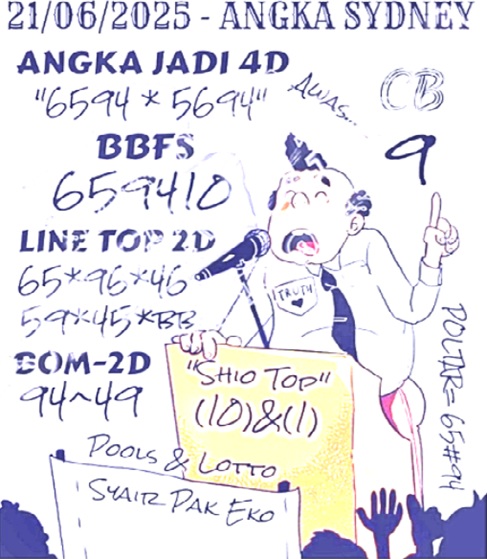 21/06/2025 - ANGKA SYDNEY
ANGKA JADI 4D
"6594 * 5694"
AWAS...
CB
9
BBFS
659410
LINE TOP 2D
65*96*46
59*45*BB
BOM-2D
94~49
TRUTH
"SHIO TOP"
(10)&(1)
POLTAR= 65#94
POOLS & LOTTO
SYAIR PAK EKO